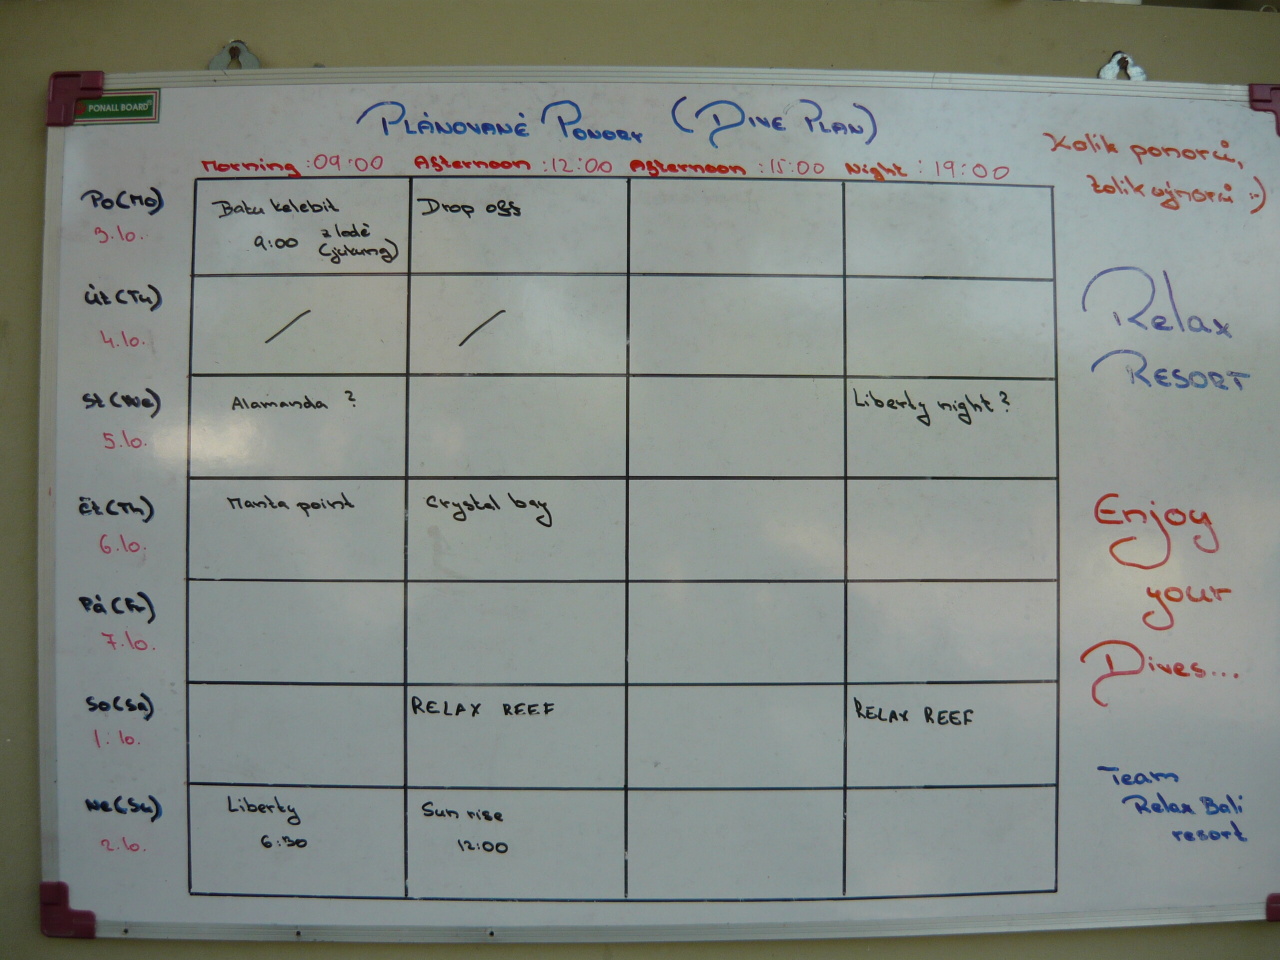 PONALL BOARD
PLÁNOVANÉ PONORY (DIVE PLAN)
Morning :09:00 Afternoon :12:00 Afternoon :15:00 Night : 19:00
Kolik ponorů,
tolik výnorů :-)
Po(Mo) Batu kelebit Drop off
3.10. 9:00 z lodě
(jukung)
Út(Tu)
4.10. / /
Relax
RESORT
St(We) Alamanda ? Liberty night?
5.10.
Čt(Th) Manta point Crystal bay
6.10.
Enjoy
your
Dives...
Pá(Fr)
7.10.
So(Sa) RELAX REEF RELAX REEF
1.10.
Ne(Su) Liberty Sun rise
2.10. 6:30 12:00
Team
Relax Bali
resort